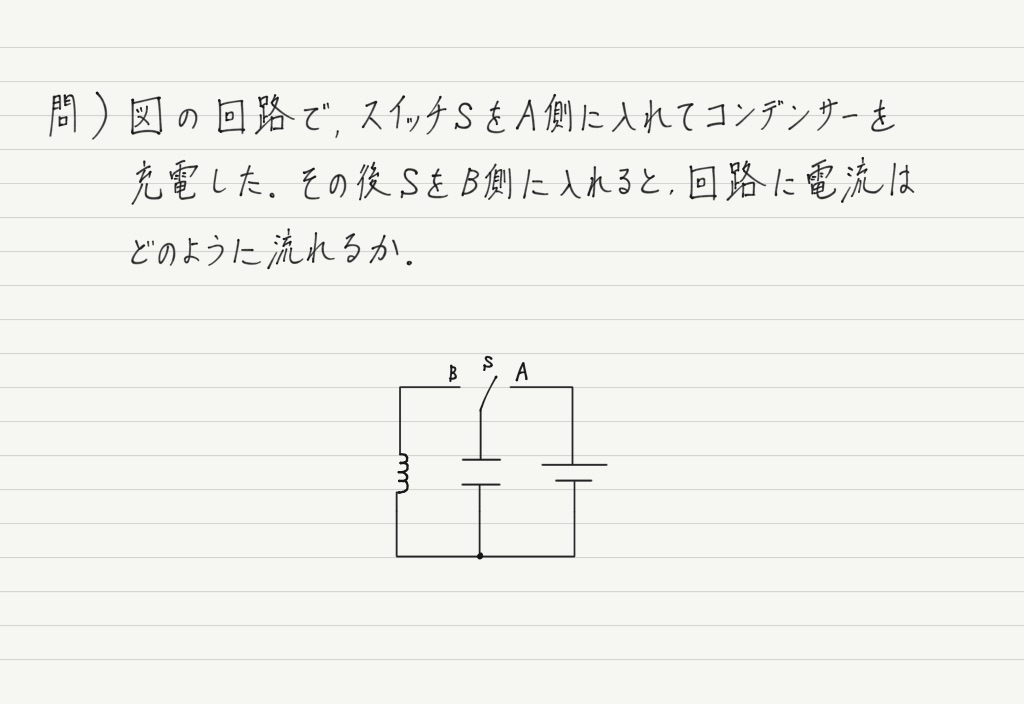 問)図の回路で,スイッチSをA側に入れてコンデンサーを
充電した.その後SをB側に入れると,回路に電流は
どのように流れるか.
B S A